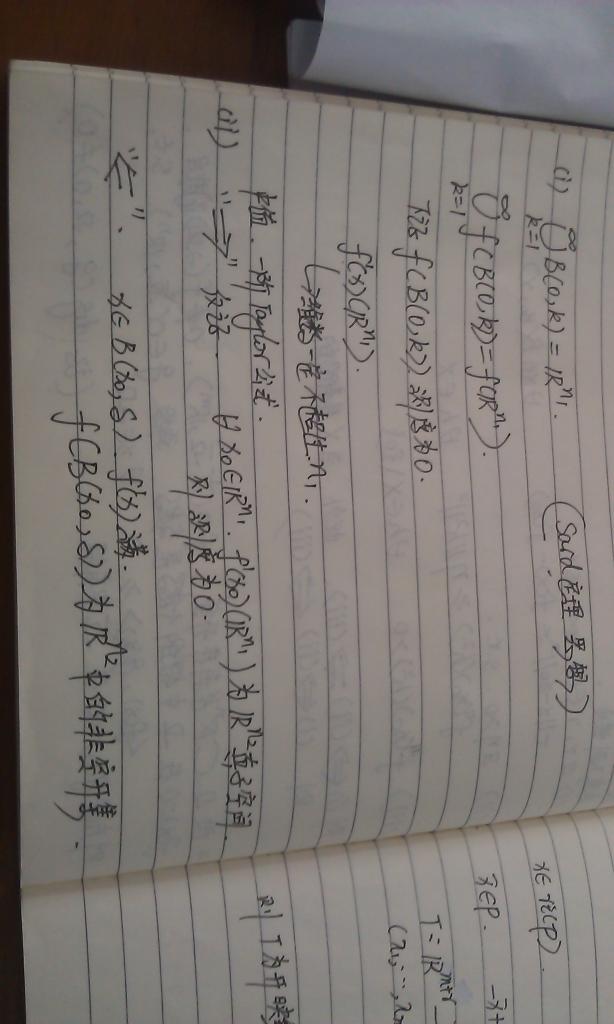 (i) ⋃_{k=1}^{∞} B(0,k) = ℝ^{n₁}. (Sard定理 思想)
⋃_{k=1}^{∞} f(B(0,k)) = f(ℝ^{n₁}).
下证 f(B(0,k)) 测度为0.
f'(x)(ℝ^{n₁}).
↳ 维数一定不超过 n₁.
中值. 一阶Taylor公式.
(ii) "⇒" 仅证. ∀ x₀∈ℝ^{n₁}. f'(x₀)(ℝ^{n₁}) 为 ℝ^{n₂} 真子空间.
则 测度为0.
"⇐". x∈B(x₀,δ). f'(x)满.
f(B(x₀,δ)) 为 ℝ^{n₂} 中的非空开集.
x∈
x̄∈P. -x̄+
T = ℝ^{m+r}
(x₁,…,x
则 T 为开映